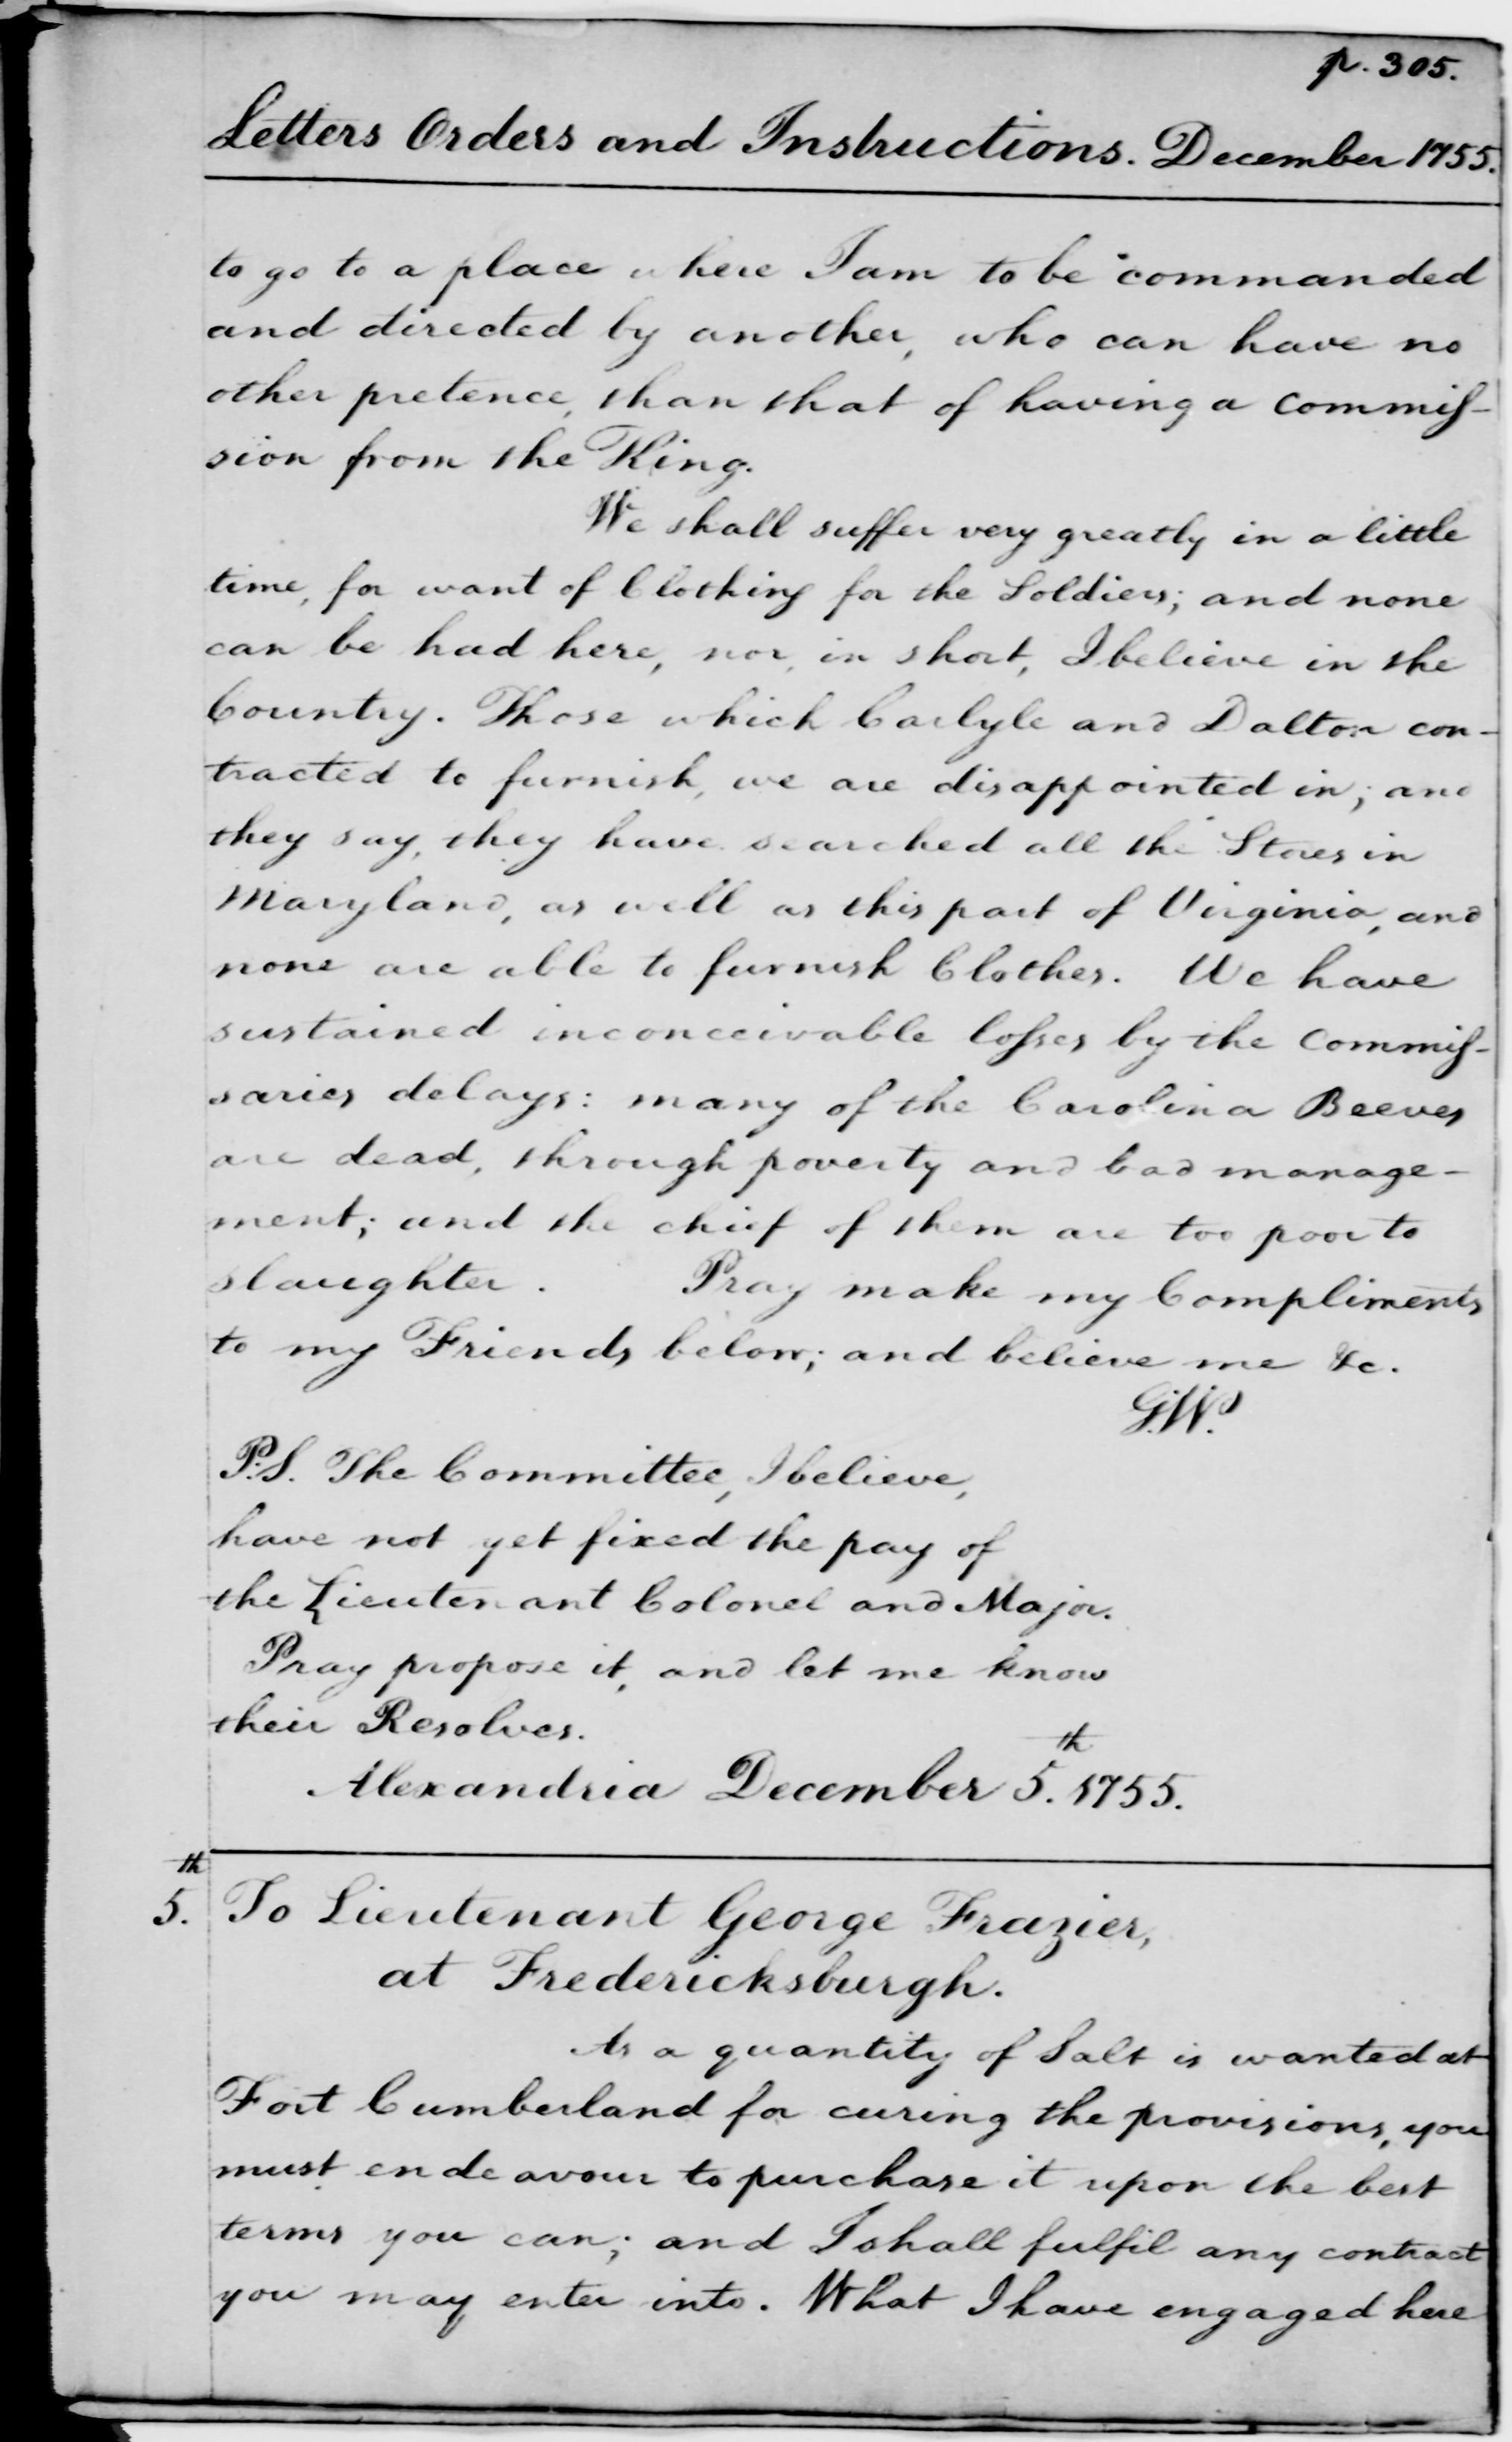 p. 305.
Letters Orders and Instructions. December 1755.
to go to a place where I am to be commanded
and directed by another, who can have no
other pretence, than that of having a commis-
sion from the King.
We shall suffer very greatly in a little
time, for want of Clothing for the Soldiers; and none
can be had here, nor, in short, I believe in the
Country. Those which Carlyle and Dalton con-
tracted to furnish, we are disappointed in; and
they say, they have searched all the Stores in
Maryland, as well as this part of Virginia, and
none are able to furnish Clothes. We have
sustained inconceivable losses by the Commis-
saries delays: many of the Carolina Beeves
are dead, through poverty and bad manage-
ment; and the chief of them are too poor to
slaughter. Pray make my Compliments
to my Friends below; and believe me &c.
G:W.
P.S. The Committee, I believe,
have not yet fixed the pay of
the Lieutenant Colonel and Major.
Pray propose it, and let me know
their Resolves.
Alexandria December 5.th 1755.
5.th To Lieutenant George Frazier,
at Fredericksburgh.
As a quantity of Salt is wanted at
Fort Cumberland for curing the provisions, you
must endeavour to purchase it upon the best
terms you can; and I shall fulfil any contract
you may enter into. What I have engaged here